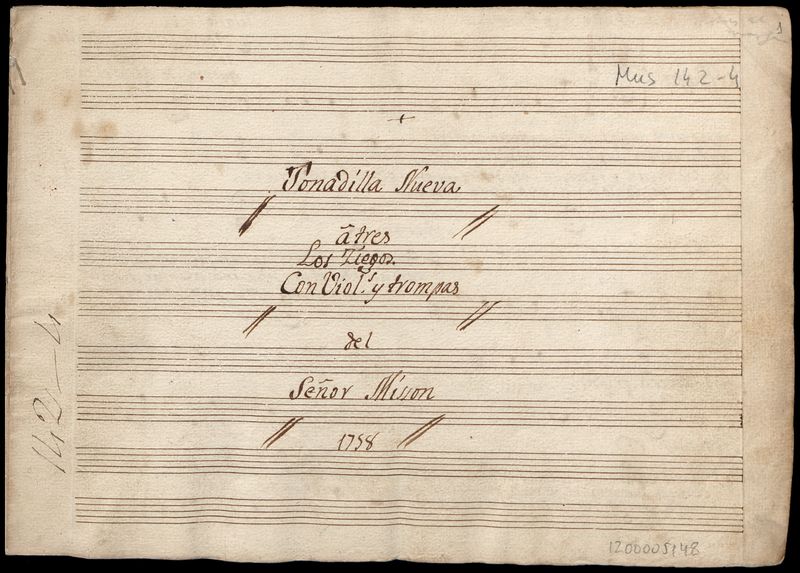 1
Mus 142-4
Tonadilla Nueva
â tres
Los Ziegos.
Con Viol.s y trompas
del
Señor Mison
1758
142-4
1200005148